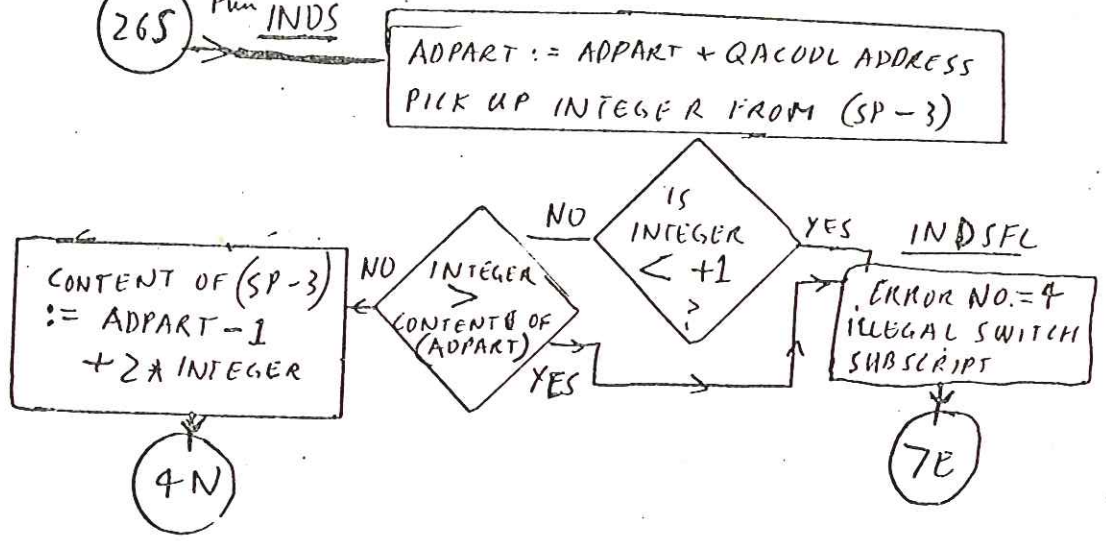 26S
INDS
ADPART := ADPART + QACODL ADDRESS
PICK UP INTEGER FROM (SP-3)
IS
INTEGER
< +1
?
NO
YES
INDSFL
ERROR NO.=4
ILLEGAL SWITCH
SUBSCRIPT
7E
INTEGER
>
CONTENTS OF
(ADPART)
NO
YES
CONTENT OF (SP-3)
:= ADPART-1
+2* INTEGER
4N